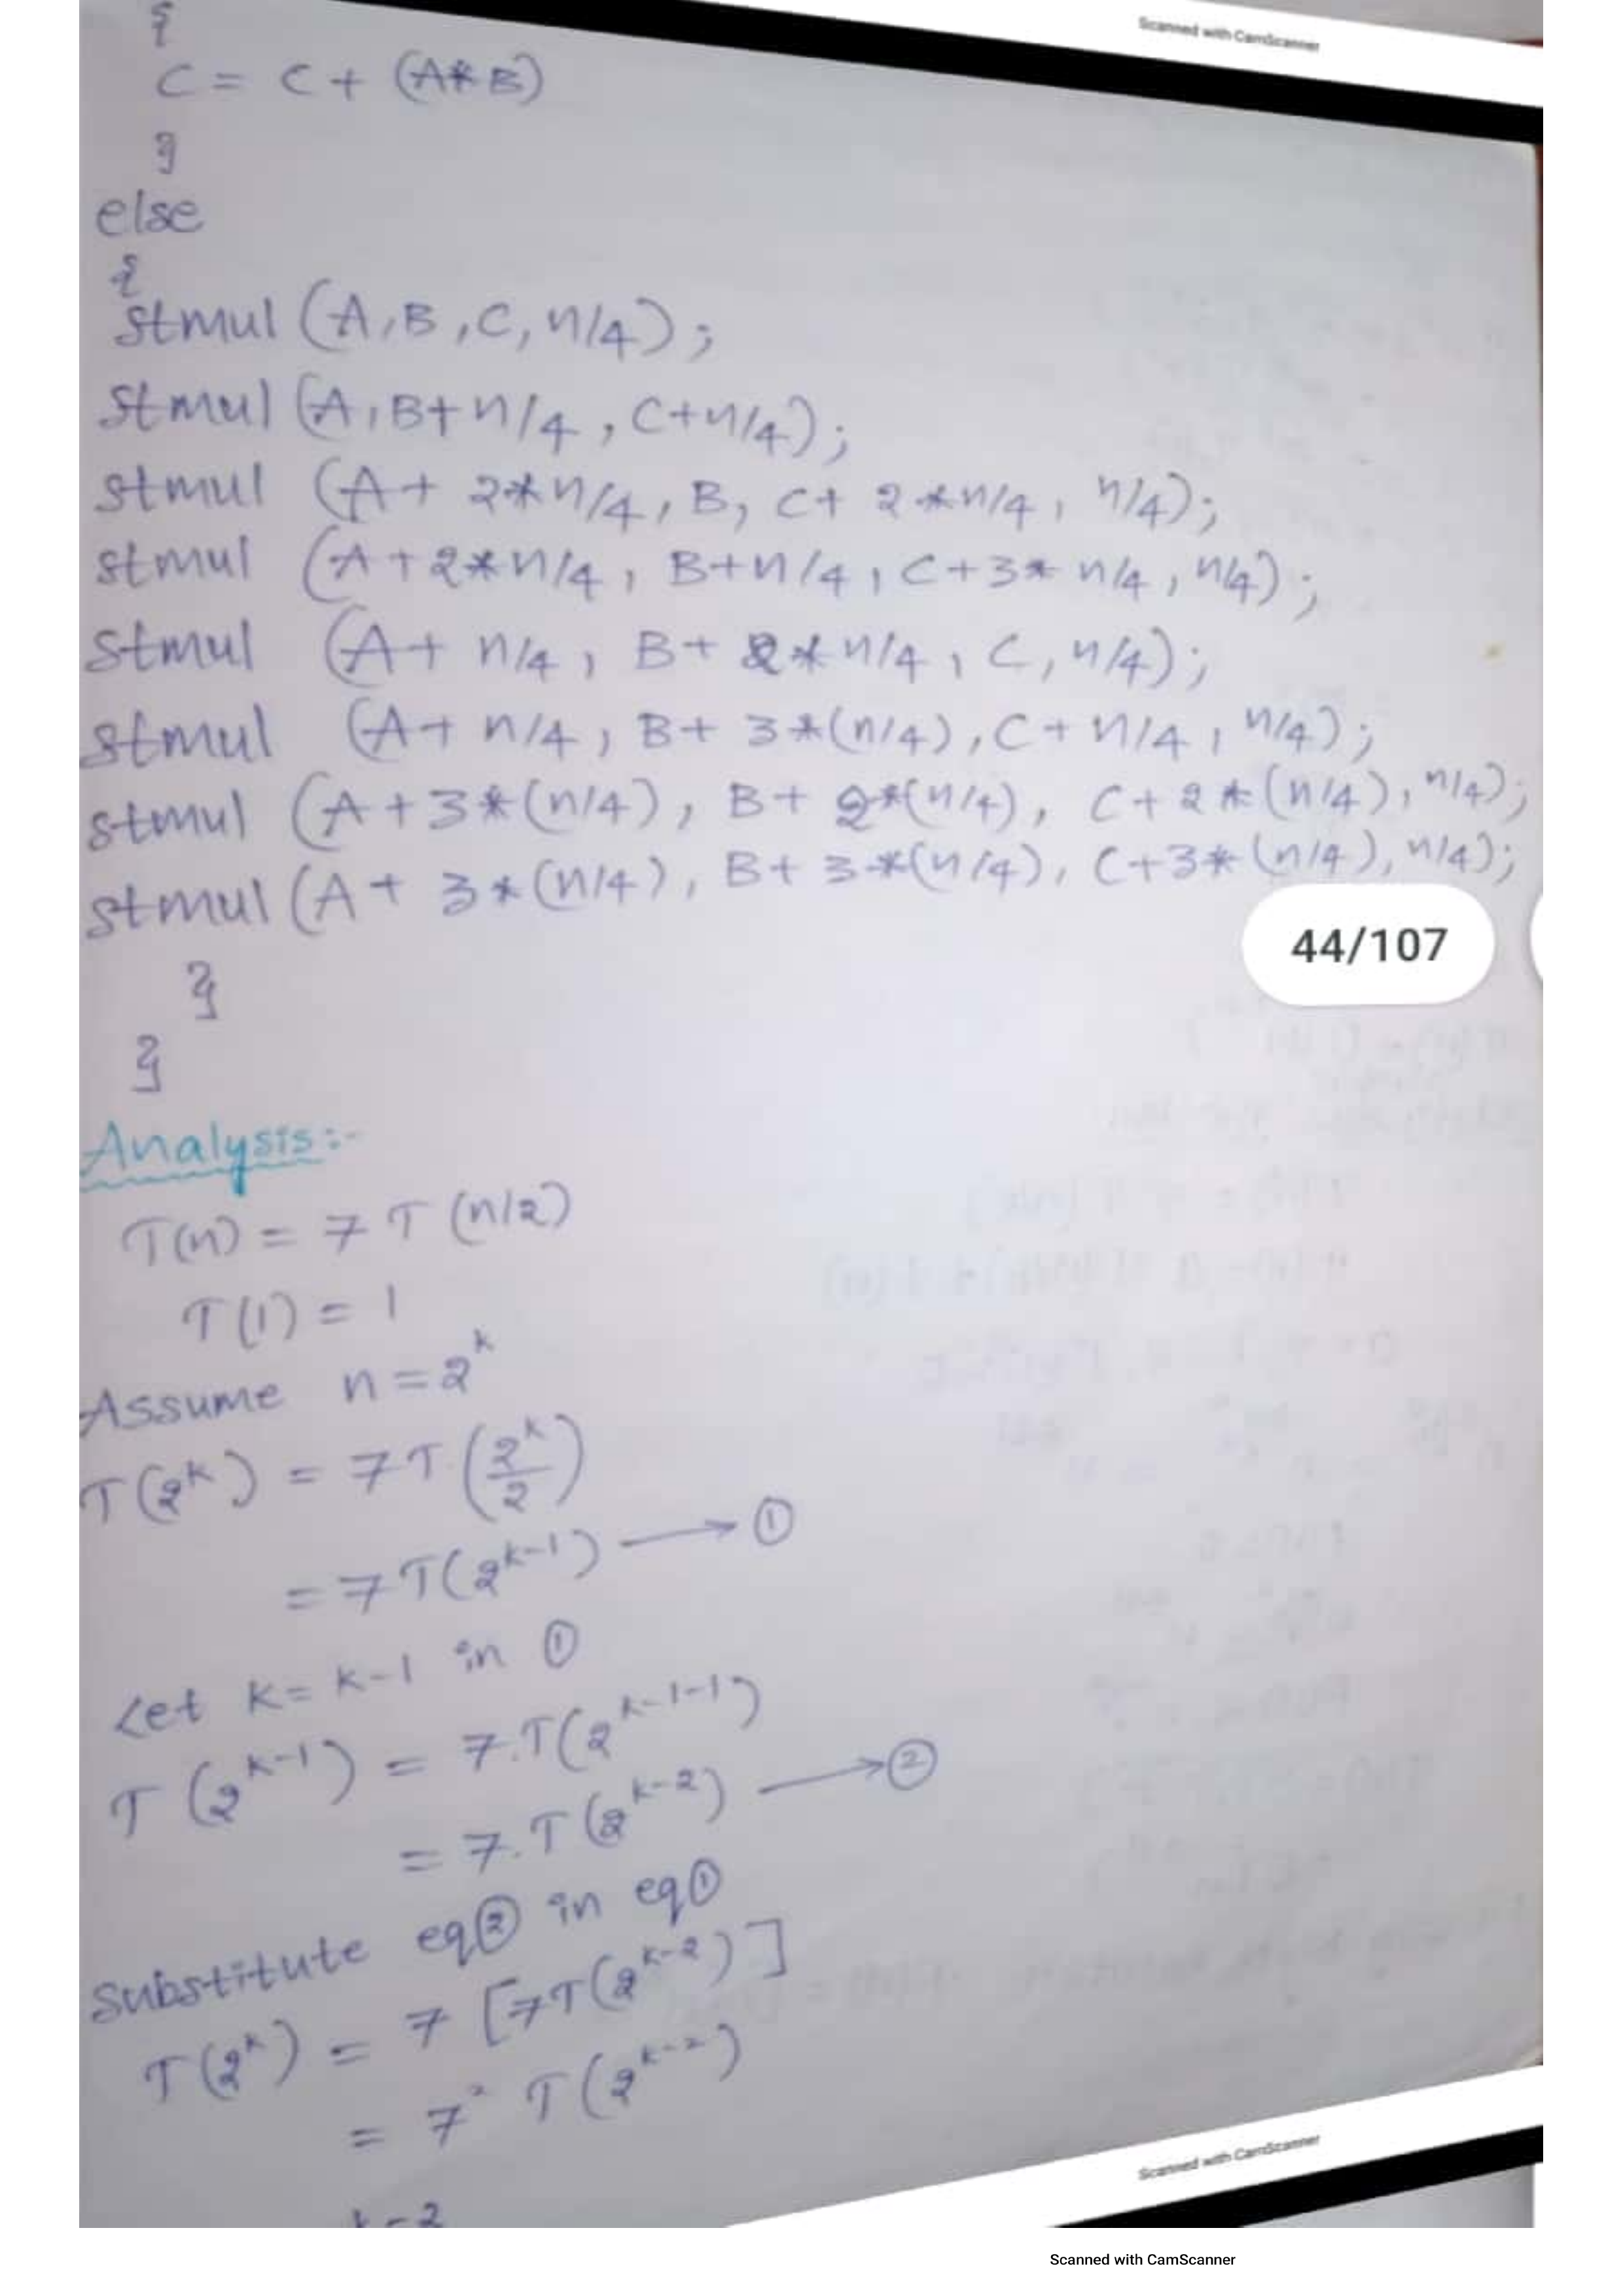 Scanned with CamScanner
{
C = C + (A*B)
}
else
{
stmul (A,B,C,n/4);
stmul (A,B+n/4,C+n/4);
stmul (A+ 2*n/4, B, C+ 2*n/4, n/4);
stmul (A+2*n/4, B+n/4, C+3* n/4, n/4);
stmul (A+ n/4, B+ 2*n/4, C, n/4);
stmul (A+ n/4, B+ 3*(n/4), C+ n/4, n/4);
stmul (A+3*(n/4), B+ 2*(n/4), C+2*(n/4), n/4);
stmul (A+ 3*(n/4), B+ 3*(n/4), C+3*(n/4), n/4);
44/107
}
}
Analysis:-
T(n) = 7 T (n/2)
T(1) = 1
Assume n = 2^k
T(2^k) = 7T (2^k/2)
= 7T(2^{k-1}) → ①
Let k = k-1 in ①
T (2^{k-1}) = 7.T(2^{k-1-1})
= 7.T(2^{k-2}) → ②
Substitute eq② in eq①
T(2^k) = 7 [7T(2^{k-2})]
= 7² T(2^{k-2})
Scanned with CamScanner
k-2
Scanned with CamScanner